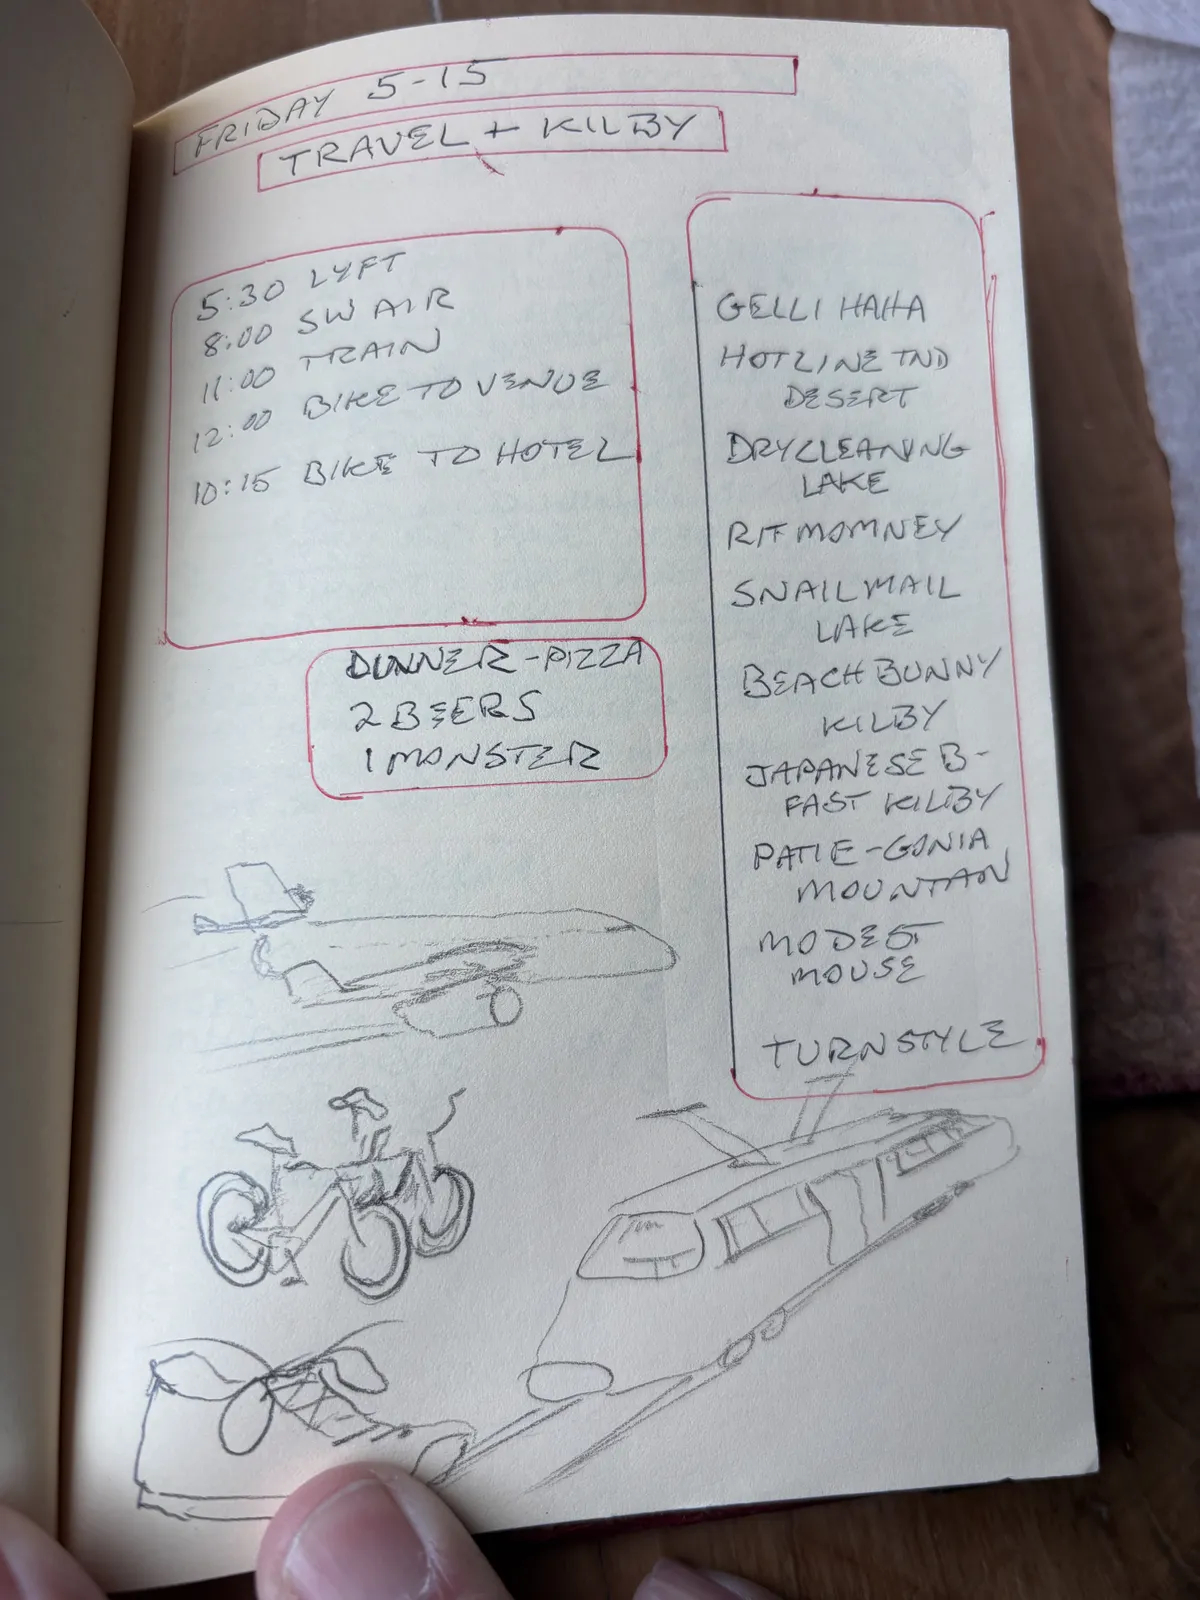 FRIDAY 5-15
TRAVEL + KILBY
5:30 LYFT
8:00 SW AIR
11:00 TRAIN
12:00 BIKE TO VENUE
10:15 BIKE TO HOTEL
DINNER - PIZZA
2 BEERS
1 MONSTER
GELLI HAHA
HOTLINE TND
DESERT
DRY CLEANING
LAKE
RIT MOMNEY
SNAIL MAIL
LAKE
BEACH BUNNY
KILBY
JAPANESE B-
FAST KILBY
PATTIE-GONIA
MOUNTAIN
MODEST
MOUSE
TURNSTYLE